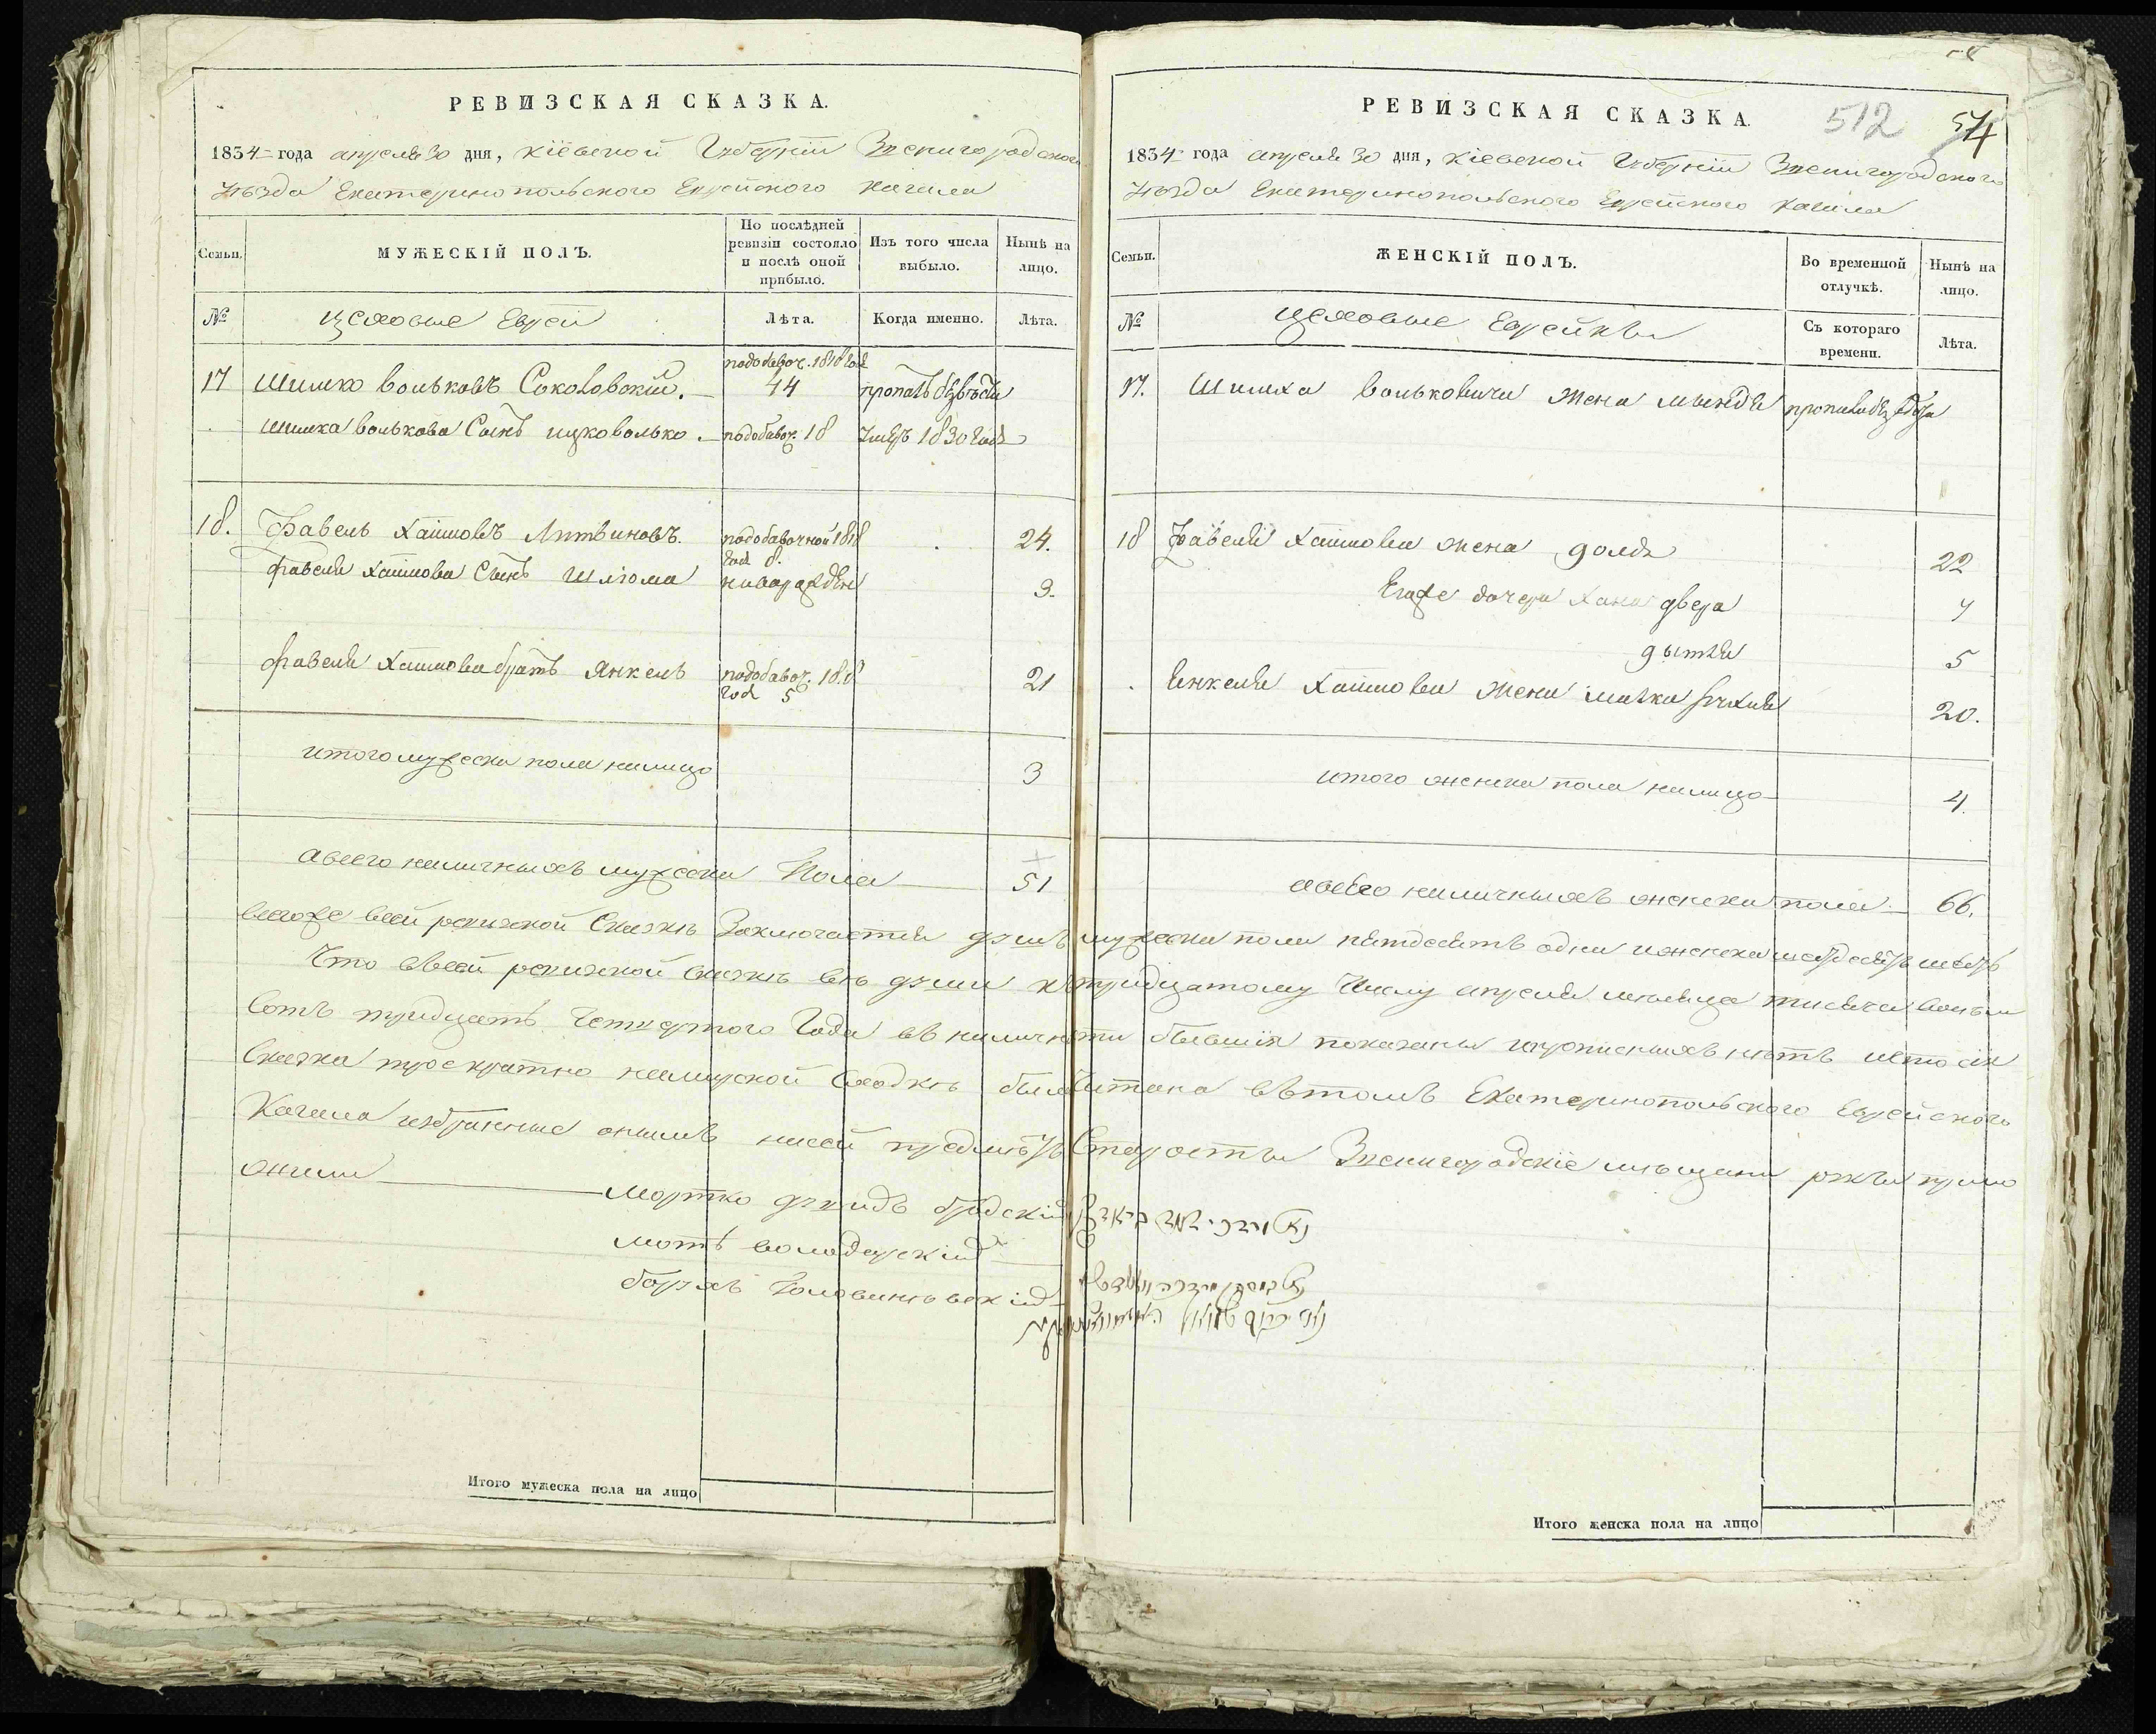 РЕВИЗСКАЯ СКАЗКА.
1834 года апреля 30 дня, Кіевской Губерніи Звенигородского
Уѣзда Екатеринопольского Еврейского Кагала
Семьи.
МУЖЕСКІЙ ПОЛЪ.
По послѣдней ревизіи состояло и послѣ оной прибыло.
Изъ того числа выбыло.
Нынѣ на лицо.
№
Цеховые Евреи
Лѣта.
Когда именно.
Лѣта.
17 Шимко Вольковъ Соколовскій. подобавоч. 1818 год 44 пропалъ безвѣсти
Шимка Волькова Сынъ Ицковолько. подобавоч. 18 умеръ 1830 года
18. Фавель Хаимовъ Литвиновъ. подобавочной 1818 год 8. 24.
Фавеля Хаимова Сынъ Шліома новорожден 3.
Фавеля Хаимова братъ Янкель подобавоч. 1818 год 5 21
итого мужеска пола налицо 3
авсего наличныхъ мужеска пола 51
РЕВИЗСКАЯ СКАЗКА.
512 54
1834 года апреля 30 дня, Кіевской Губерніи Звенигородского
Уѣзда Екатеринопольского Еврейского Кагала
Семьи.
ЖЕНСКІЙ ПОЛЪ.
Во временной отлучкѣ.
Нынѣ на лицо.
№
Цеховые Еврейки
Съ котораго времени.
Лѣта.
17. Шимка Вольковича жена
18 Фавеля Хаимова жена 22
Егоже дочери Хана двера
5
Янкеля Хаимова жена 20.
итого женска пола налицо 4.
авсего наличныхъ женска пола 66.
всегоже всей ревизкой Сказкѣ Заключается душъ мужеска пола пятдесятъ одна иженска шестдесятъ шесть
Что вовсей ревизкой сказкѣ всѣ души ктридцатому Числу апреля месяца тысяча восемь
Сотъ тридцать Четвертого Года въ наличности бывшія показаны ипрописныхъ нѣтъ ичто сія
Сказка троекратно намирской сходкѣ была читана вътомъ Екатеринопольского Еврейского
Кагала избранные онымъ насей предмѣтъ Старосты Звенигородскіе мѣщане руки прило
жили
Мортко Бродскій
Мотъ Володарскій
Борухъ
Итого мужеска пола на лицо
Итого женска пола на лицо